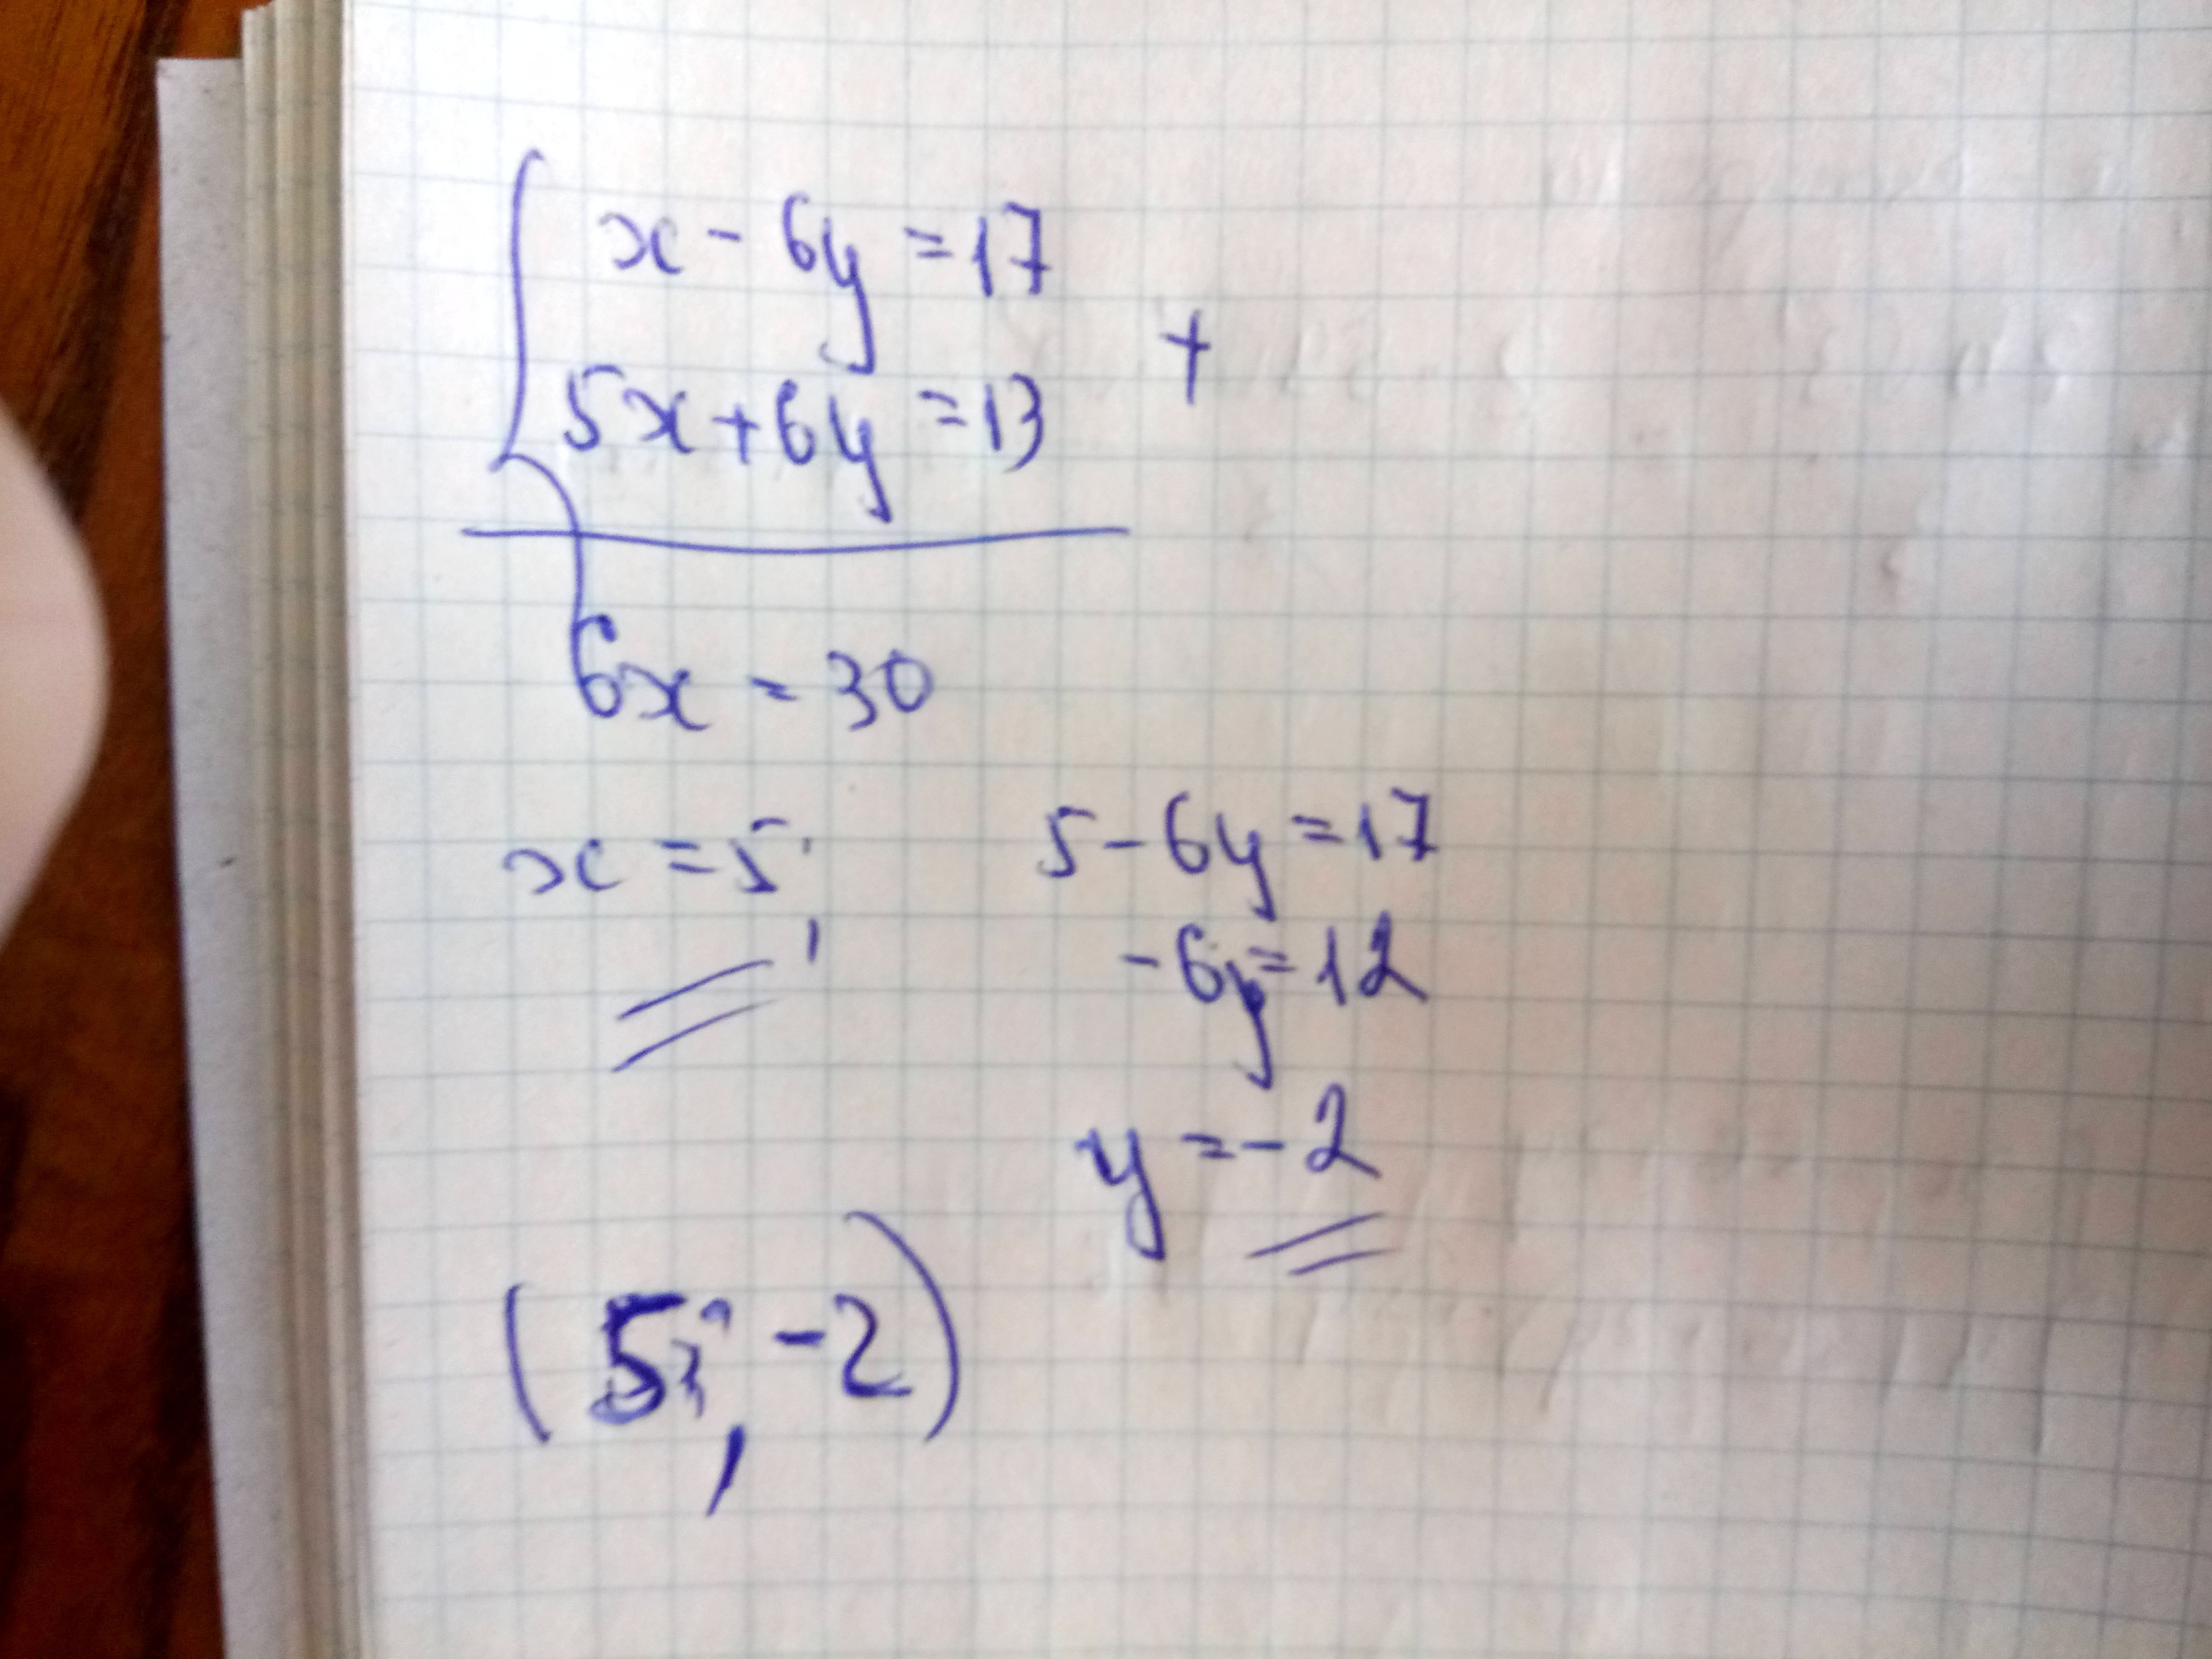 x - 6y = 17
+
5x + 6y = 13
6x = 30
x = 5;
5 - 6y = 17
-6y = 12
y = -2
(5; -2)